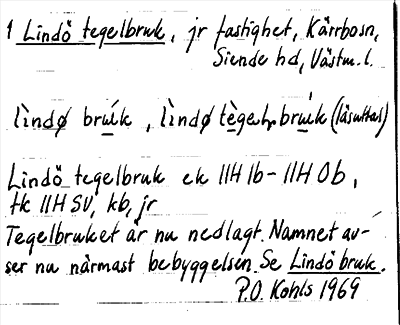 1 Lindö tegelbruk, jr fastighet, Kärrbosn,
Siende hd, Västm. l.
lìndø brúk, lìndø tègel, brúk (läsuttal)
Lindö tegelbruk ek 11H 1b - 11H 0b,
tk 11H SV, kb, jr
Tegelbruket är nu nedlagt. Namnet av-
ser nu närmast bebyggelsen. Se Lindö bruk.
P.O. Kohls 1969